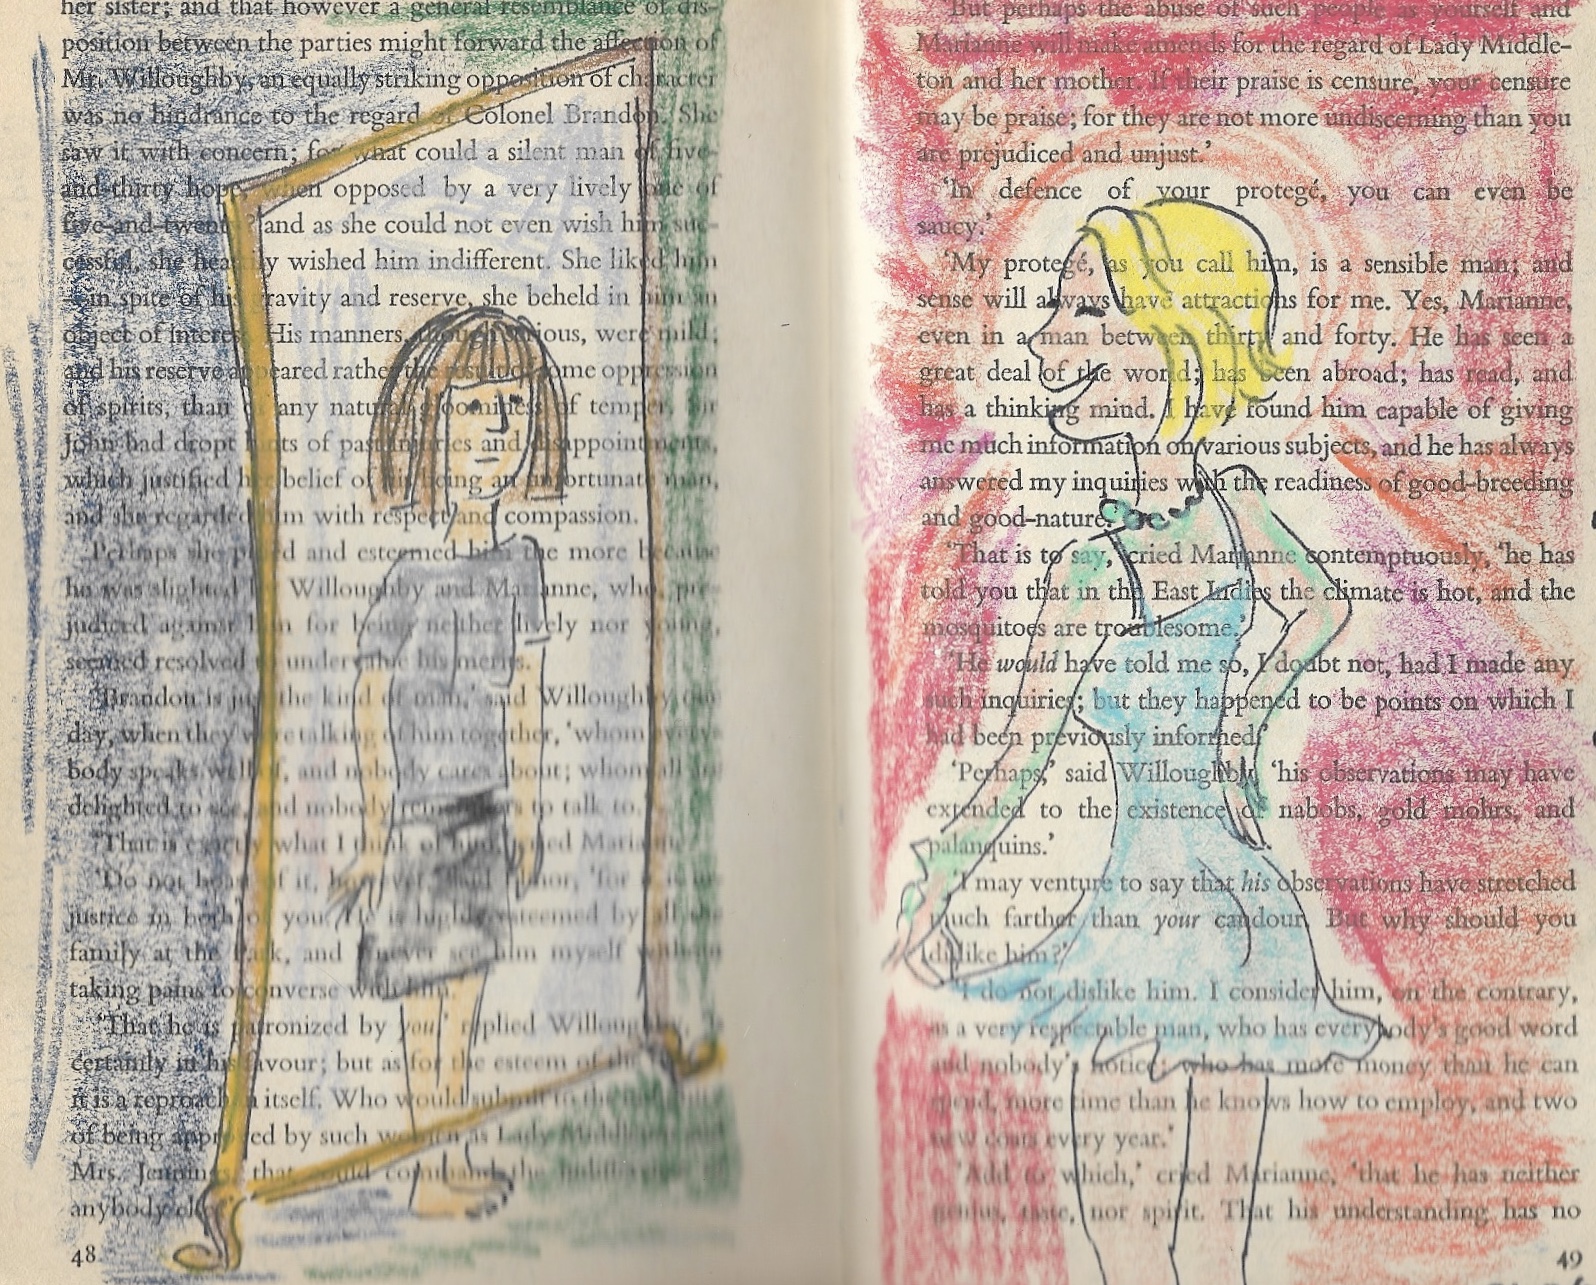 her sister; and that however a general resemblance of dis-
position between the parties might forward the affection of
Mr. Willoughby, an equally striking opposition of character
was no hindrance to the regard of Colonel Brandon. She
saw it with concern; for what could a silent man of five-
and-thirty hope, when opposed by a very lively one of
five-and-twenty? and as she could not even wish him suc-
cessful, she heartily wished him indifferent. She liked him
—in spite of his gravity and reserve, she beheld in him an
object of interest. His manners, though serious, were mild;
and his reserve appeared rather the result of some oppression
of spirits, than of any natural gloominess of temper. Sir
John had dropt hints of past injuries and disappointments,
which justified her belief of his being an unfortunate man,
and she regarded him with respect and compassion.
Perhaps she pitied and esteemed him the more because
he was slighted by Willoughby and Marianne, who, pre-
judiced against him for being neither lively nor young,
seemed resolved to undervalue his merits.
'Brandon is just the kind of man,' said Willoughby, one
day, when they were talking of him together, 'whom every-
body speaks well of, and nobody cares about; whom all are
delighted to see, and nobody remembers to talk to.'
'That is exactly what I think of him,' cried Marianne.
'Do not boast of it, however,' said Elinor, 'for it is in-
justice in both of you. He is highly esteemed by all the
family at the Park, and I never see him myself without
taking pains to converse with him.'
'That he is patronized by you,' replied Willoughby, 'is
certainly in his favour; but as for the esteem of the others,
it is a reproach in itself. Who would submit to the indignity
of being approved by such women as Lady Middleton and
Mrs. Jennings, that could command the indifference of
anybody else?'
48
'But perhaps the abuse of such people as yourself and
Marianne will make amends for the regard of Lady Middle-
ton and her mother. If their praise is censure, your censure
may be praise; for they are not more undiscerning than you
are prejudiced and unjust.'
'In defence of your protegé, you can even be
saucy.'
'My protegé, as you call him, is a sensible man; and
sense will always have attractions for me. Yes, Marianne,
even in a man between thirty and forty. He has seen a
great deal of the world; has been abroad; has read, and
has a thinking mind. I have found him capable of giving
me much information on various subjects, and he has always
answered my inquiries with the readiness of good-breeding
and good-nature.'
'That is to say,' cried Marianne contemptuously, 'he has
told you that in the East Indies the climate is hot, and the
mosquitoes are troublesome.'
'He would have told me so, I doubt not, had I made any
such inquiries; but they happened to be points on which I
had been previously informed.'
'Perhaps,' said Willoughby, 'his observations may have
extended to the existence of nabobs, gold mohrs, and
palanquins.'
'I may venture to say that his observations have stretched
much farther than your candour. But why should you
dislike him?'
'I do not dislike him. I consider him, on the contrary,
as a very respectable man, who has everybody's good word
and nobody's notice; who has more money than he can
spend, more time than he knows how to employ, and two
new coats every year.'
'Add to which,' cried Marianne, 'that he has neither
genius, taste, nor spirit. That his understanding has no
49